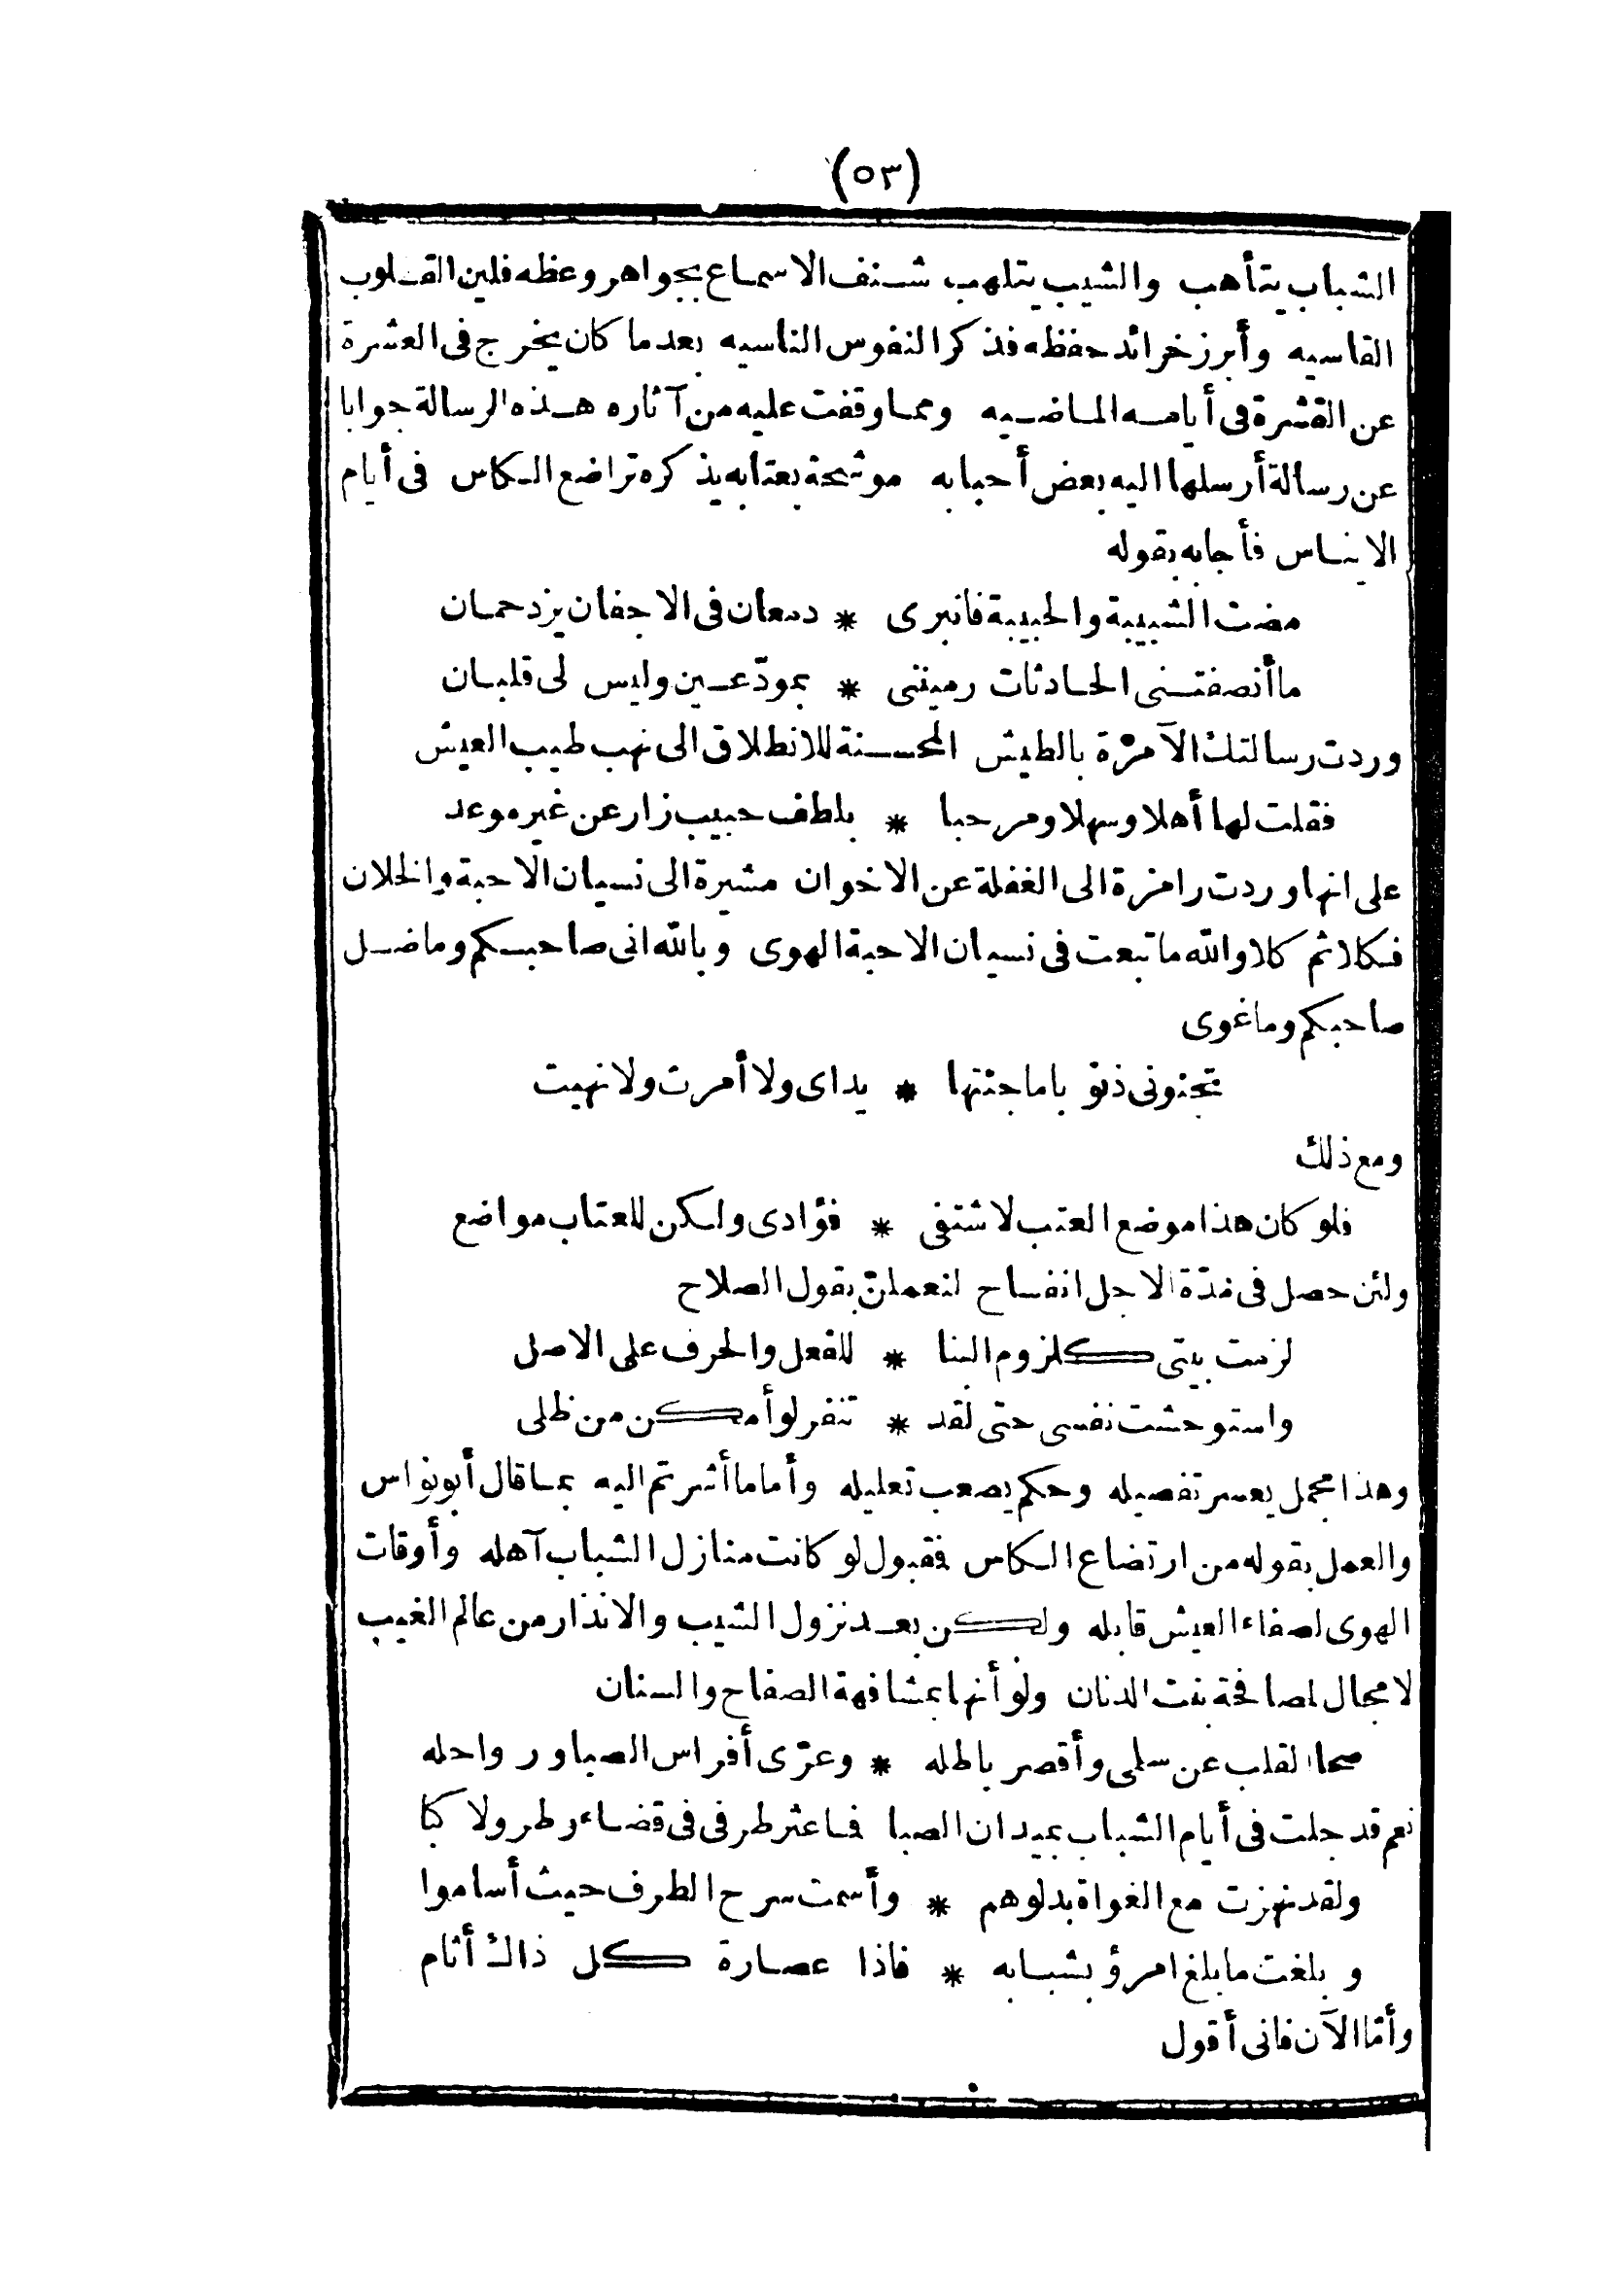 (٥٣)
الشباب يتأهب والشيب يتلهب شنف الاسماع بجواهر وعظه فلين القلوب
القاسيه وأبرز خرائد حفظه فذكر النفوس الناسيه بعد ما كان يخرج فى العشرة
عن القشرة فى أيامه الماضيه ومما وقفت عليه من آثاره هذه الرسالة جوابا
عن رسالة أرسلها اليه بعض أحبابه موشحة بعتابه يذكره تراضع الكاس فى أيام
الايناس فأجابه بقوله
مضت الشبيبة والحبيبة فانبرى * دمعان فى الاجفان يزدحمان
ما أنصفتنى الحادثات رميننى * بمودّعين وليس لى قلبان
وردت رسالتك الآمرة بالطيش المحسنة للانطلاق الى نهب طيب العيش
فقلت لها أهلا وسهلا ومرحبا * بلطف حبيب زار عن غير موعد
على انها وردت رامزة الى الغفلة عن الاخوان مشيرة الى نسيان الاحبة والخلان
فكلا ثم كلا والله ما تبعت فى نسيان الاحبة الهوى وبالله انى صاحبكم وما ضل
صاحبكم وما غوى
تجنونى ذنوبا ما جنتها * يداى ولا أمرت ولا نهيت
ومع ذلك
فلو كان هذا موضع العتب لاشتفى * فؤادى ولكن للعتاب مواضع
ولئن حصل فى مدّة الاجل انفساح لنعملنّ بقول الصلاح
لزمت بيتى كلزوم البنا * للفعل والحرف على الاصل
واستوحشت نفسى حتى لقد * تنفر لو أمكن من ظلى
وهذا مجمل يعسر تفصيله وحكم يصعب تعليله وأما ما أشرتم اليه بما قال أبو نواس
والعمل بقوله من ارتضاع الكاس فقبول لو كانت منازل الشباب آهله وأوقات
الهوى لصفاء العيش قابله ولكن بعد نزول الشيب والانذار من عالم الغيب
لا مجال لمصافحة بنت الدنان ولو أنها بمشافهة الصفاح والسنان
صحا القلب عن سلمى وأقصر باطله * وعرّى أفراس الصبا ورواحله
نعم قد جلت فى أيام الشباب بميدان الصبا فما عثر طرفى فى قضاء وطر ولا كبا
ولقد نهزت مع الغواة بدلوهم * وأسمت سرح الطرف حيث أساموا
وبلغت ما بلغ امرؤ بشبابه * فاذا عصارة كل ذاك أثام
وأمّا الآن فانى أقول